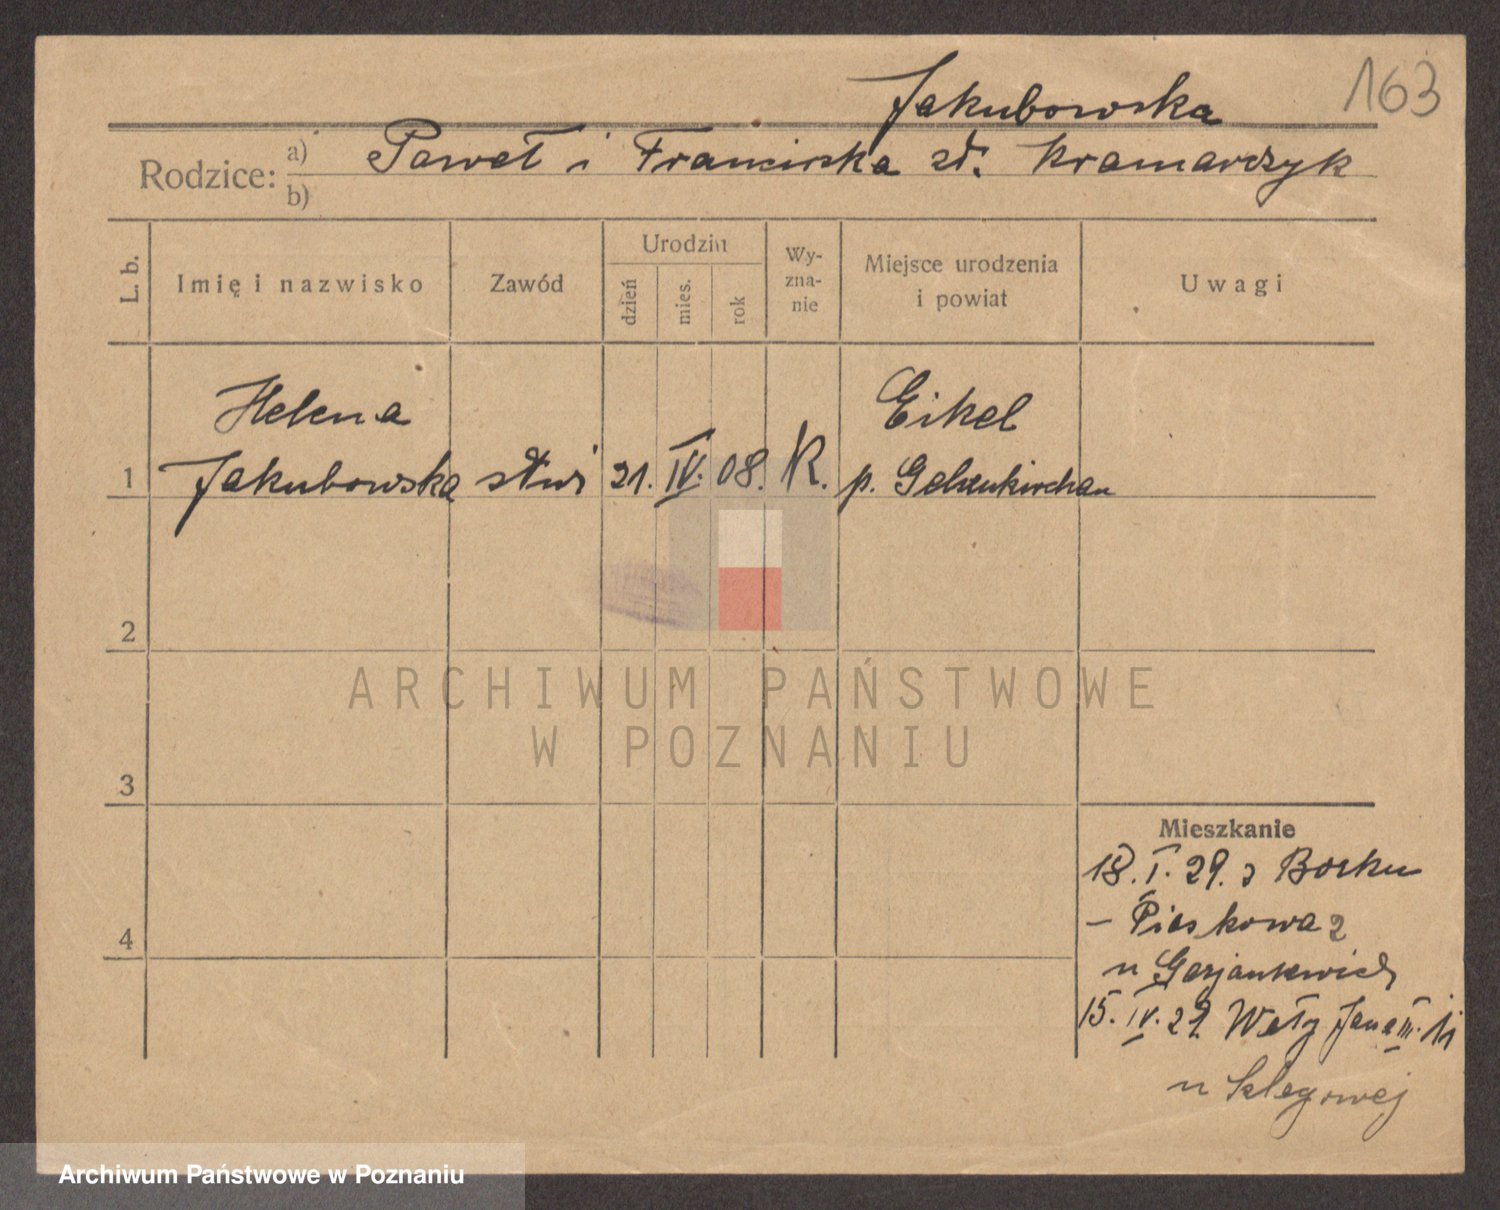 163
Jakubowska
Rodzice: a) Paweł i Franciszka zd. Kramarczyk
b)
L. b.
Imię i nazwisko
Zawód
Urodzin
dzień
mies.
rok
Wy-
zna-
nie
Miejsce urodzenia
i powiat
Uwagi
Helena
Jakubowska
1
21. IV. 08. K.
Eikel
p. Gelsenkirchen
2
ARCHIWUM PAŃSTWOWE
W POZNANIU
3
Mieszkanie
18. I. 29. z Borku
– Piaskowa 2
4
15. IV. 29 Wały Jana III. 11
Archiwum Państwowe w Poznaniu